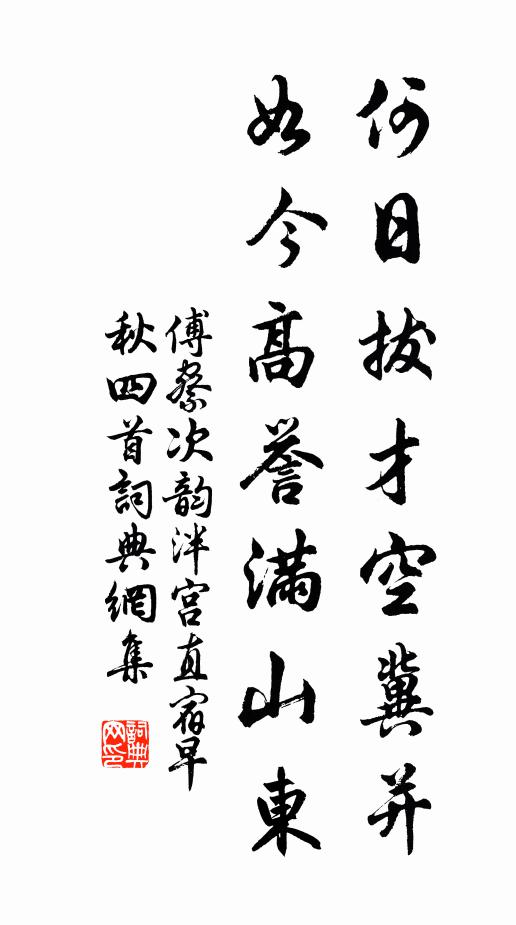 何日拔才空冀并
如今高誉滿山東
傅察次韵泮宫直宿早
秋四首詞典網集
詞典网印